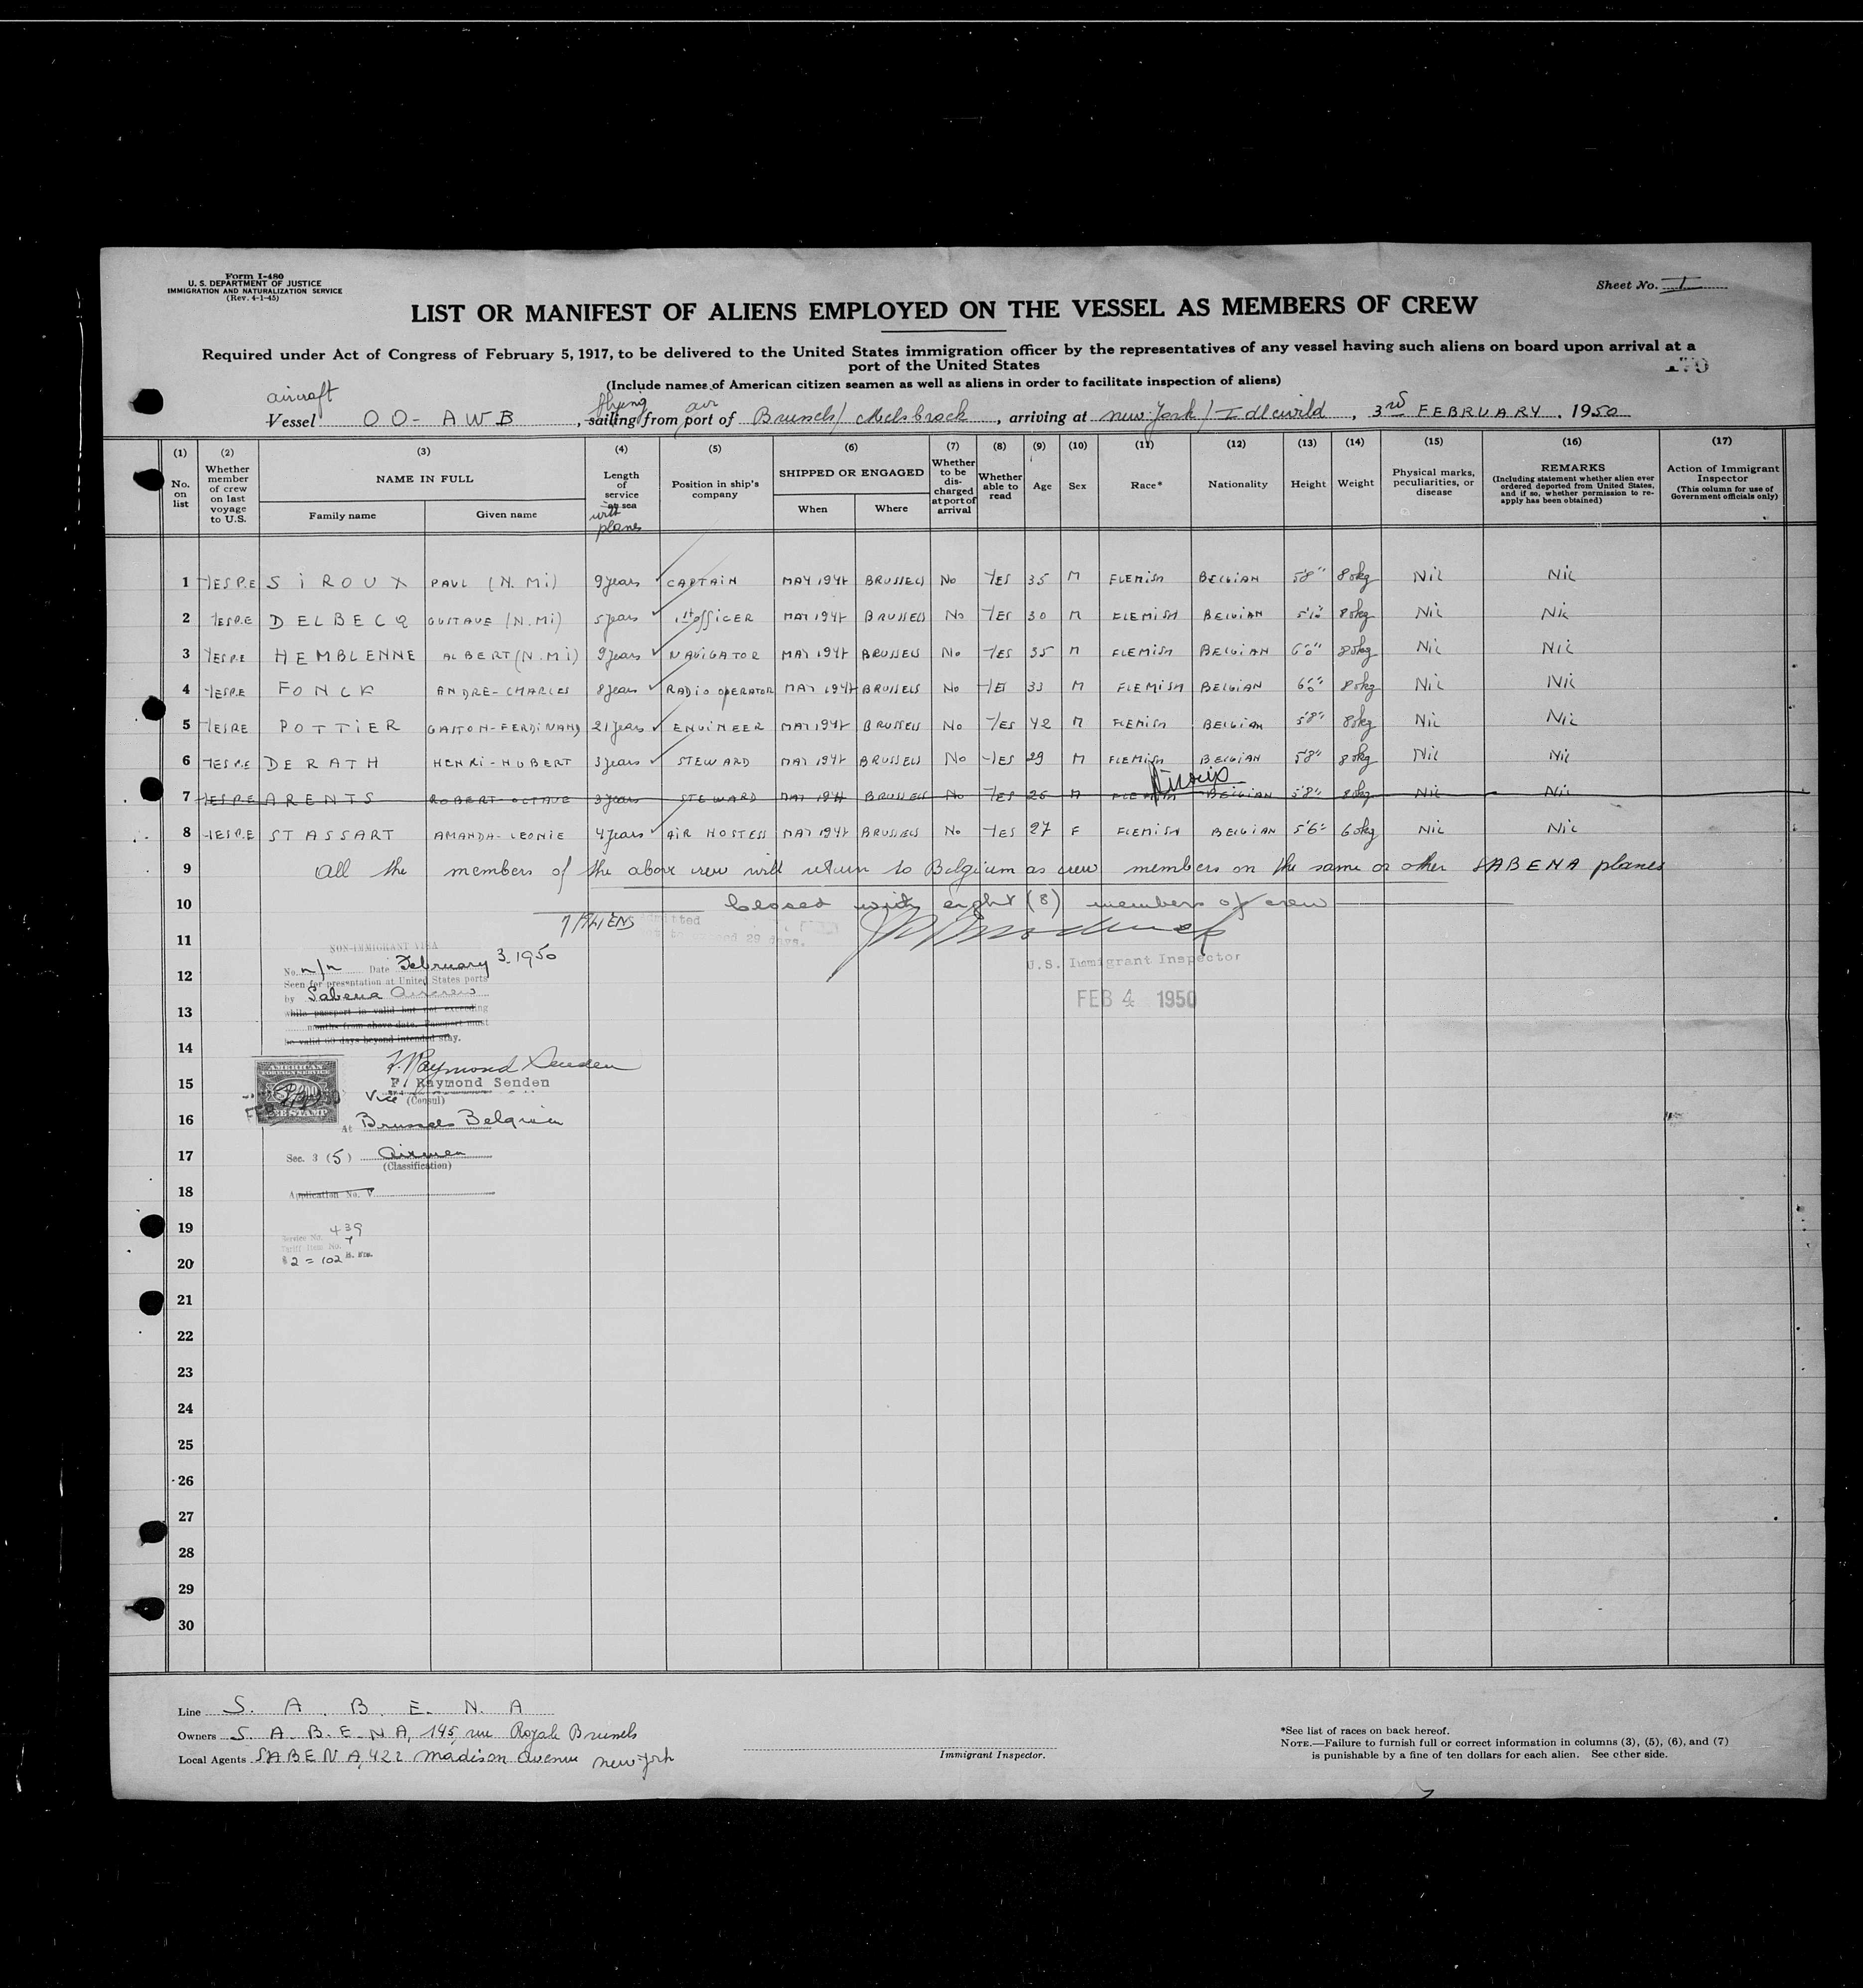 Form I-480
U. S. DEPARTMENT OF JUSTICE
IMMIGRATION AND NATURALIZATION SERVICE
(Rev. 4-1-45)
Sheet No. I
LIST OR MANIFEST OF ALIENS EMPLOYED ON THE VESSEL AS MEMBERS OF CREW
Required under Act of Congress of February 5, 1917, to be delivered to the United States immigration officer by the representatives of any vessel having such aliens on board upon arrival at a
port of the United States
(Include names of American citizen seamen as well as aliens in order to facilitate inspection of aliens)
aircraft flying air
Vessel OO-AWB, sailing from port of Brussels/Melsbroek, arriving at New-York/Idlewild, 3rd FEBRUARY, 1950
(1) (2) (3) (4) (5) (6) (7) (8) (9) (10) (11) (12) (13) (14) (15) (16) (17)
No. on list
Whether member of crew on last voyage to U.S.
NAME IN FULL
Family name
Given name
Length of service at sea
with planes
Position in ship's company
SHIPPED OR ENGAGED
When
Where
Whether to be discharged at port of arrival
Whether able to read
Age
Sex
Race*
Nationality
Height
Weight
Physical marks, peculiarities, or disease
REMARKS
(Including statement whether alien ever ordered deported from United States, and if so, whether permission to reapply has been obtained)
Action of Immigrant Inspector
(This column for use of Government officials only)
1 YES P.E SIROUX PAUL (N.Mi) 9 years CAPTAIN MAY BRUSSELS No YES 35 M FLEMISH BELGIAN 5'8" 80kg Nil Nil
2 YES P.E DELBECQ GUSTAVE (N.Mi) 5 years 1st OFFICER MAY BRUSSELS No YES 30 M FLEMISH BELGIAN 80kg Nil Nil
3 YES P.E HEMBLENNE ALBERT (N.Mi) 9 years NAVIGATOR MAY BRUSSELS No YES 35 M FLEMISH BELGIAN 6'0" 80kg Nil Nil
4 YES P.E FONCK ANDRE-CHARLES 8 years RADIO OPERATOR MAY BRUSSELS No YES 33 M FLEMISH BELGIAN 6'0" 80kg Nil Nil
5 YES P.E POTTIER GASTON-FERDINAND 21 years ENGINEER MAY BRUSSELS No YES 42 M FLEMISH BELGIAN 5'8" 80kg Nil Nil
6 YES P.E DERATH HENRI-HUBERT 3 years STEWARD MAY BRUSSELS No YES 29 M FLEMISH BELGIAN 5'8" 80kg Nil Nil
7 YES P.E ARENTS ROBERT-OCTAVE 3 years STEWARD MAY BRUSSELS No YES 26 M FLEMISH BELGIAN 5'8" 80kg Nil Nil
8 YES P.E STASSART AMANDA-LEONIE 4 years AIR HOSTESS MAY BRUSSELS No YES 27 F FLEMISH BELGIAN 5'6" 60kg Nil Nil
9 All the members of the above crew will return to Belgium as crew members on the same or other SABENA planes
10 Closed with eight (8) members of crew
7 ALIENS
Admitted
29 days.
11
U.S. Immigrant Inspector
FEB 4 1950
NON-IMMIGRANT VISA
12
No. n/n Date February 3, 1950
Seen for presentation at United States ports
by Sabena Aircrew
13
while passport is valid but not exceeding
months from above date. Passport must
be valid 60 days beyond intended stay.
14
F. Raymond Senden
15
F. Raymond Senden
Vice (Consul)
AMERICAN
FOREIGN SERVICE
FEE STAMP
16
At Brussels Belgium
17
Sec. 3 (5) Airmen
(Classification)
18
Application No. V
19
Service No. 439
Tariff Item No. 7
20
$2 = 102 B. Frs.
21
22
23
24
25
26
27
28
29
30
Line S. A. B. E. N. A
Owners S. A. B. E. N. A, 145, rue Royale Brussels
Local Agents SABENA, 422 Madison Avenue New-York
Immigrant Inspector.
*See list of races on back hereof.
NOTE.—Failure to furnish full or correct information in columns (3), (5), (6), and (7)
is punishable by a fine of ten dollars for each alien. See other side.